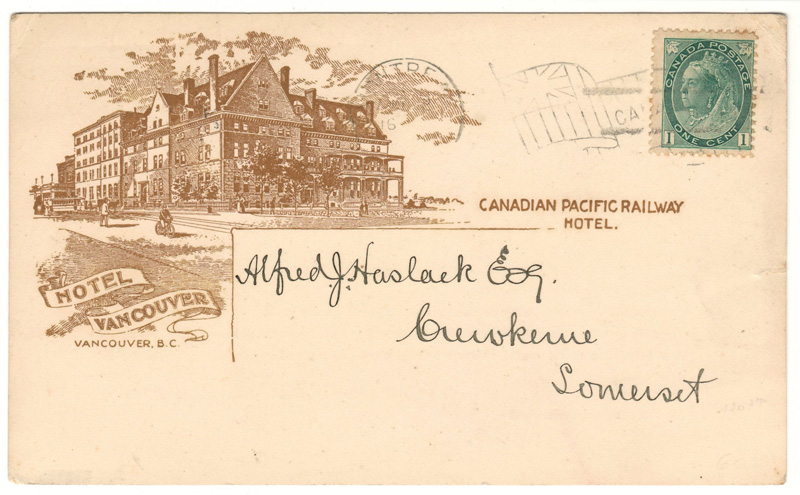 CANADA POSTAGE
ONE CENT
1 1
CANADIAN PACIFIC RAILWAY
HOTEL.
HOTEL
VANCOUVER
VANCOUVER, B.C.
Alfred J. Haslack Esq.
Crewkerne
Somerset